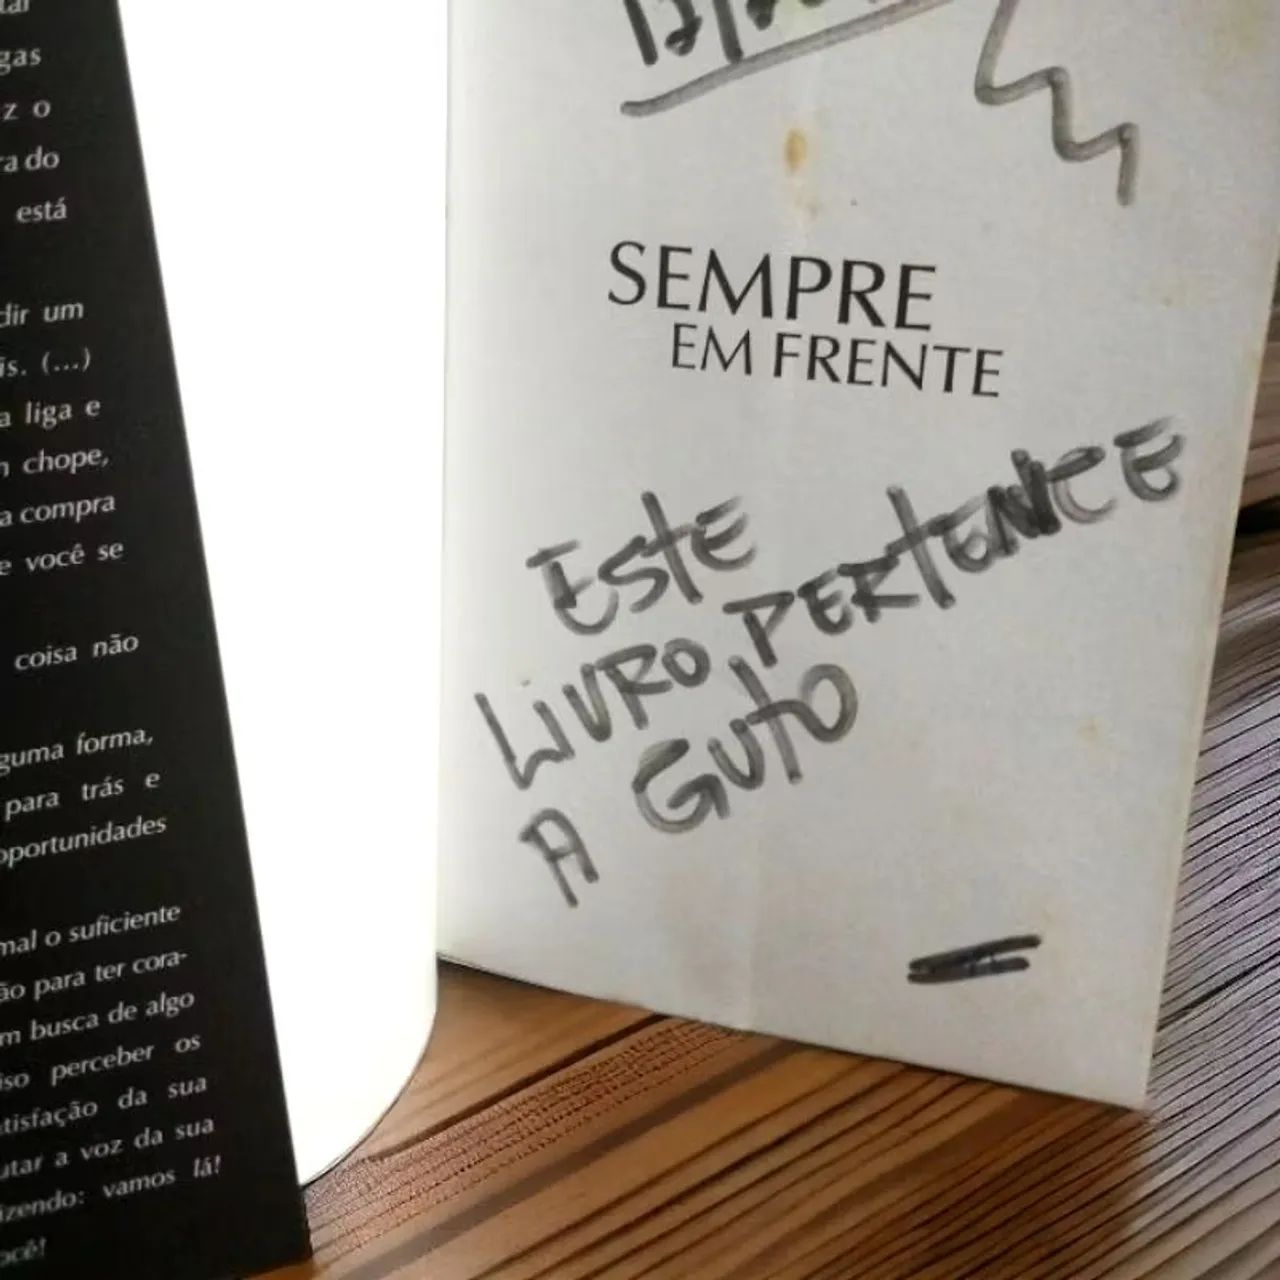 gas
z o
do
está
um
(...)
liga e
chope,
a compra
e você se
coisa não
forma,
para trás e
oportunidades
o suficiente
para ter cora-
busca de algo
perceber os
da sua
a voz da sua
vamos lá!
SEMPRE
EM FRENTE
ESTE
LIVRO PERTENCE
A GUTO